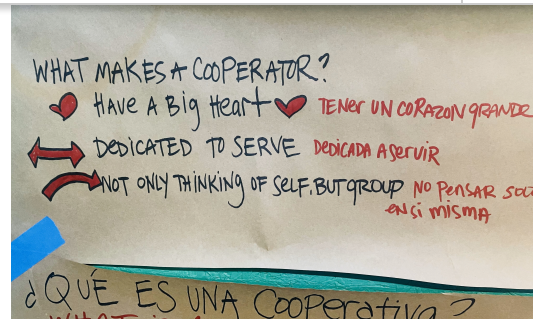 WHAT MAKES A COOPERATOR?
HAVE A Big Heart TENER UN CORAZON GRANDE
DEDICATED TO SERVE DEDICADA A SERVIR
NOT ONLY THINKING OF SELF, BUT GROUP NO PENSAR
EN SI MISMA
¿QUÉ ES UNA COOPERATIVA?